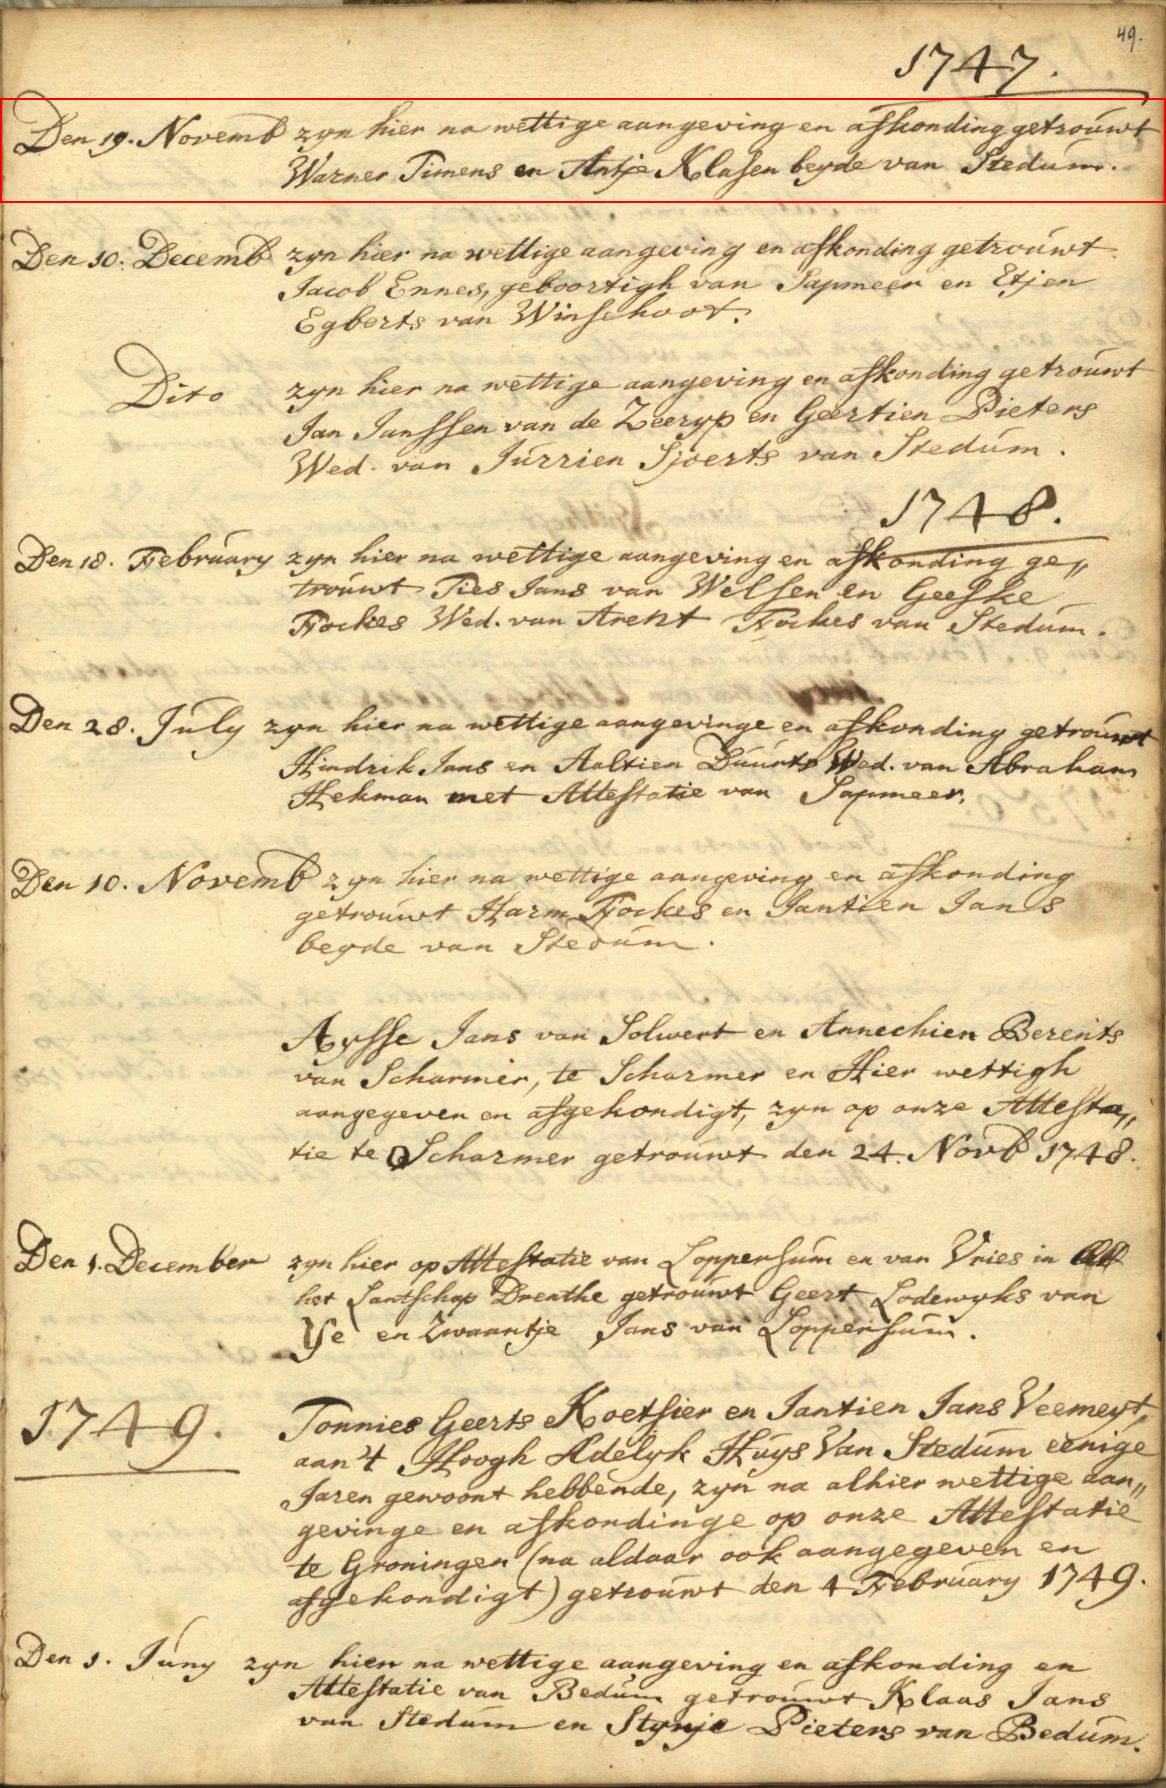 49.
1747.
Den 19. Novemb zyn hier na wettige aangeving en afkonding getrouwt
Warner Timens en Antje Klasen beyde van Stedum.
Den 10. Decemb zyn hier na wettige aangeving en afkonding getrouwt
Jacob Ennes, geboortigh van Sapmeer en Etjen
Egberts van Winschoot.
Dito zyn hier na wettige aangeving en afkonding getrouwt
Jan Janssen van de Zeeryp en Geertien Pieters
Wed. van Jurrien Sjoerts van Stedum.
1748.
Den 18. February zyn hier na wettige aangeving en afkonding ge„
trouwt Ties Jans van Welsen en Geeske
Fockes Wed. van Arent Fockes van Stedum.
Den 28. July zyn hier na wettige aangevinge en afkonding getrouwt
Hindrik Jans en Aaltien Duurts Wed. van Abraham
Hekman met Attestatie van Sapmeer.
Den 10. Novemb zyn hier na wettige aangeving en afkonding
getrouwt Harm Fockes en Jantien Jans
beyde van Stedum.
Aysse Jans van Solwert en Annechien Berents
van Scharmer, te Scharmer en Hier wettigh
aangegeven en afgekondigt, zyn op onze Attesta„
tie te Scharmer getrouwt den 24. Novb 1748.
Den 1. December zyn hier op Attestatie van Loppersum en van Vries in
het Lantschap Drenthe getrouwt Geert Lodewyks van
Yse en Zwaantje Jans van Loppersum.
1749. Tonnies Geerts Koetsier en Jantien Jans Veemeyt,
aan 't Hoogh Adelyk Huys Van Stedum eenige
Jaren gewoont hebbende, zyn na alhier wettige aan„
gevinge en afkondinge op onze Attestatie
te Groningen (na aldaar ook aangegeven en
afgekondigt) getrouwt den 4 February 1749.
Den 1. Juny zyn hier na wettige aangeving en afkonding en
Attestatie van Bedum getrouwt Klaas Jans
van Stedum en Stynje Pieters van Bedum.